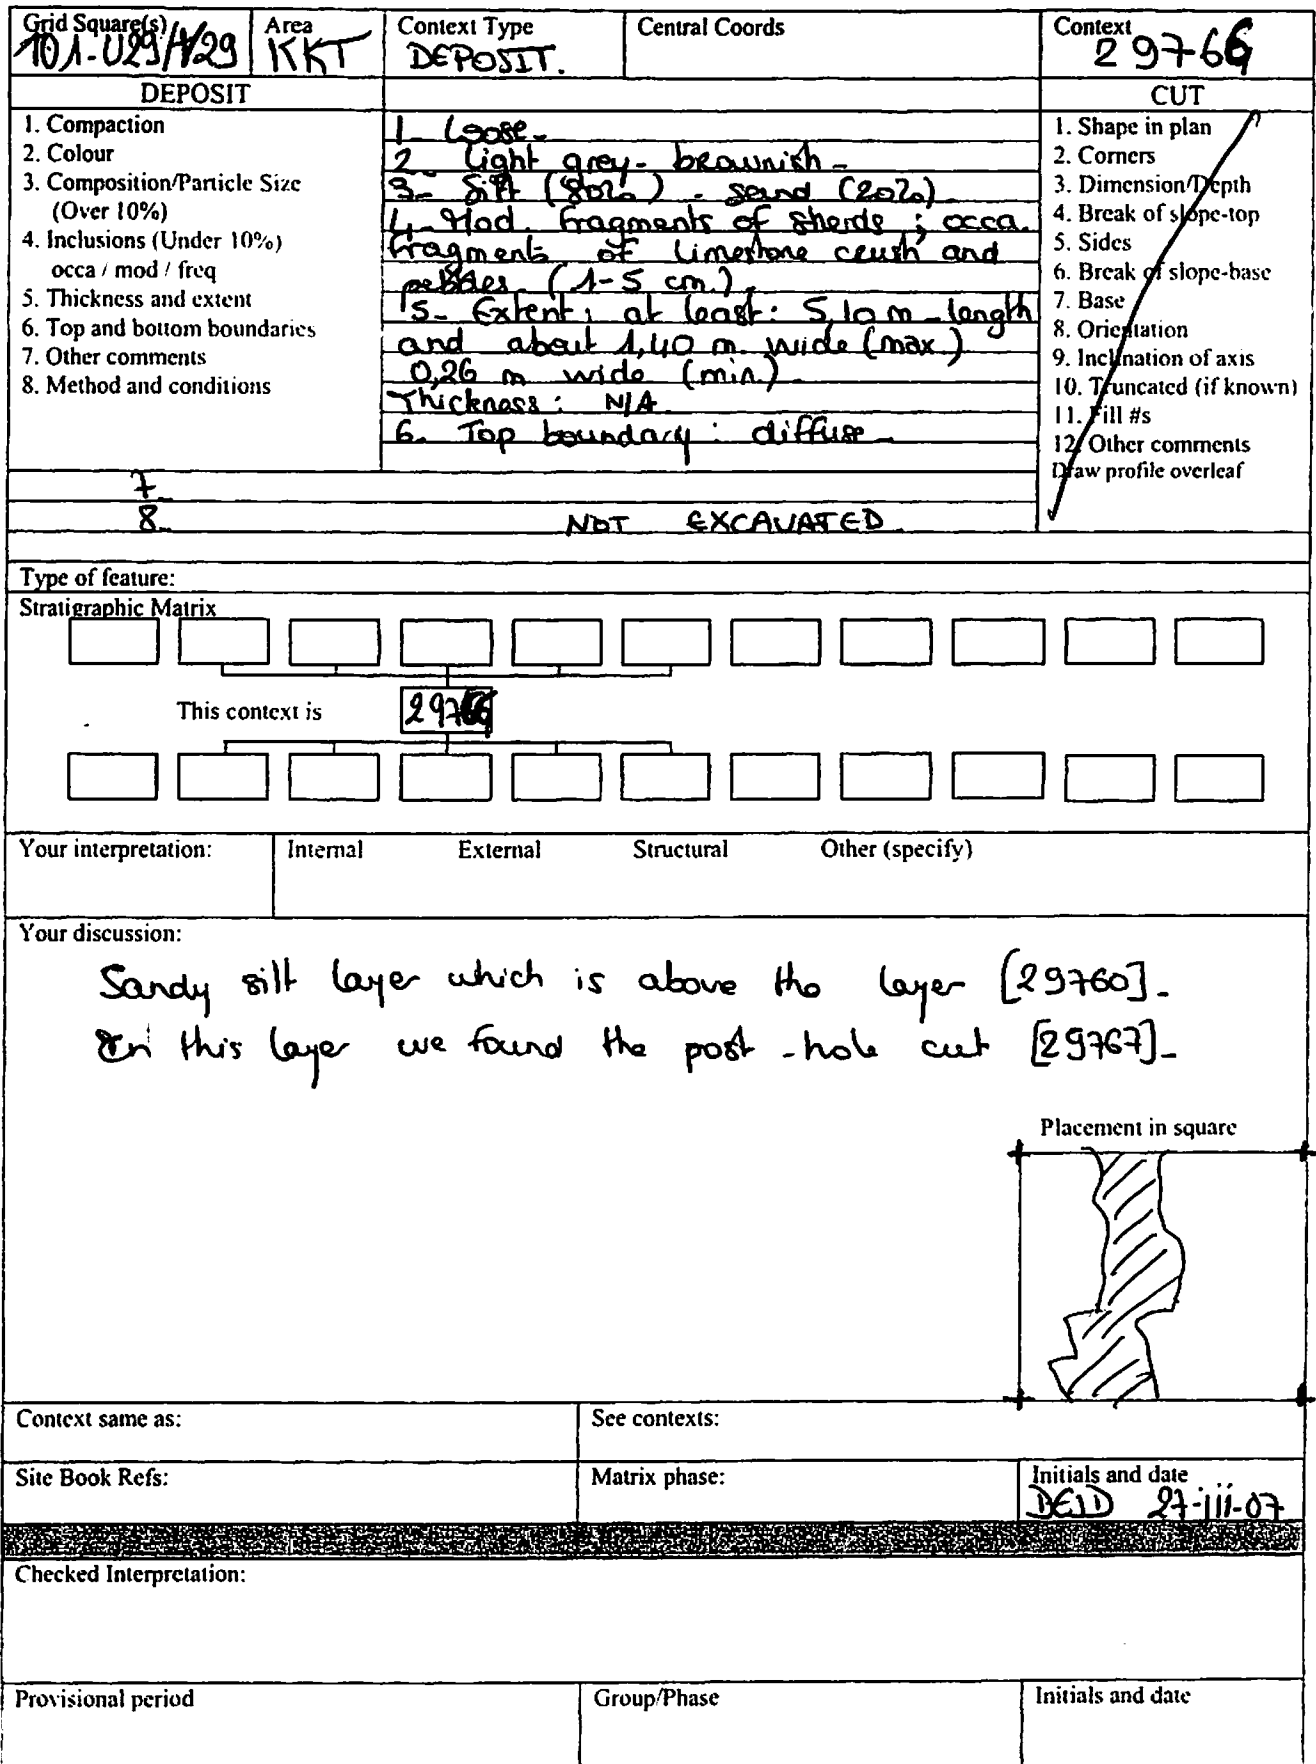 Grid Square(s) Area Context Type Central Coords Context
101-U29/V29 KKT DEPOSIT. 29766
DEPOSIT CUT
1. Compaction
2. Colour
3. Composition/Particle Size
(Over 10%)
4. Inclusions (Under 10%)
occa / mod / freq
5. Thickness and extent
6. Top and bottom boundaries
7. Other comments
8. Method and conditions
1_ Loose_
2_ Light grey- brownish_
3_ Silt (80%) - sand (20%)_
4_ Mod. fragments of sherds ; occa.
fragments of limestone crush and
pebbles (1-5 cm.)_
5_ Extent: at least: 5,10 m_length
and about 1,40 m. wide (max.)
0,26 m wide (min.)_
Thickness: N/A
6_ Top boundary : diffuse_
7_
8_ NOT EXCAVATED
1. Shape in plan
2. Corners
3. Dimension/Depth
4. Break of slope-top
5. Sides
6. Break of slope-base
7. Base
8. Orientation
9. Inclination of axis
10. Truncated (if known)
11. Fill #s
12. Other comments
Draw profile overleaf
Type of feature:
Stratigraphic Matrix
This context is 29766
Your interpretation: Internal External Structural Other (specify)
Your discussion:
Sandy silt layer which is above the layer [29760]_
In this layer we found the post-hole cut [29767]_
Placement in square
Context same as: See contexts:
Site Book Refs: Matrix phase: Initials and date
27-iii-07
Checked Interpretation:
Provisional period Group/Phase Initials and date